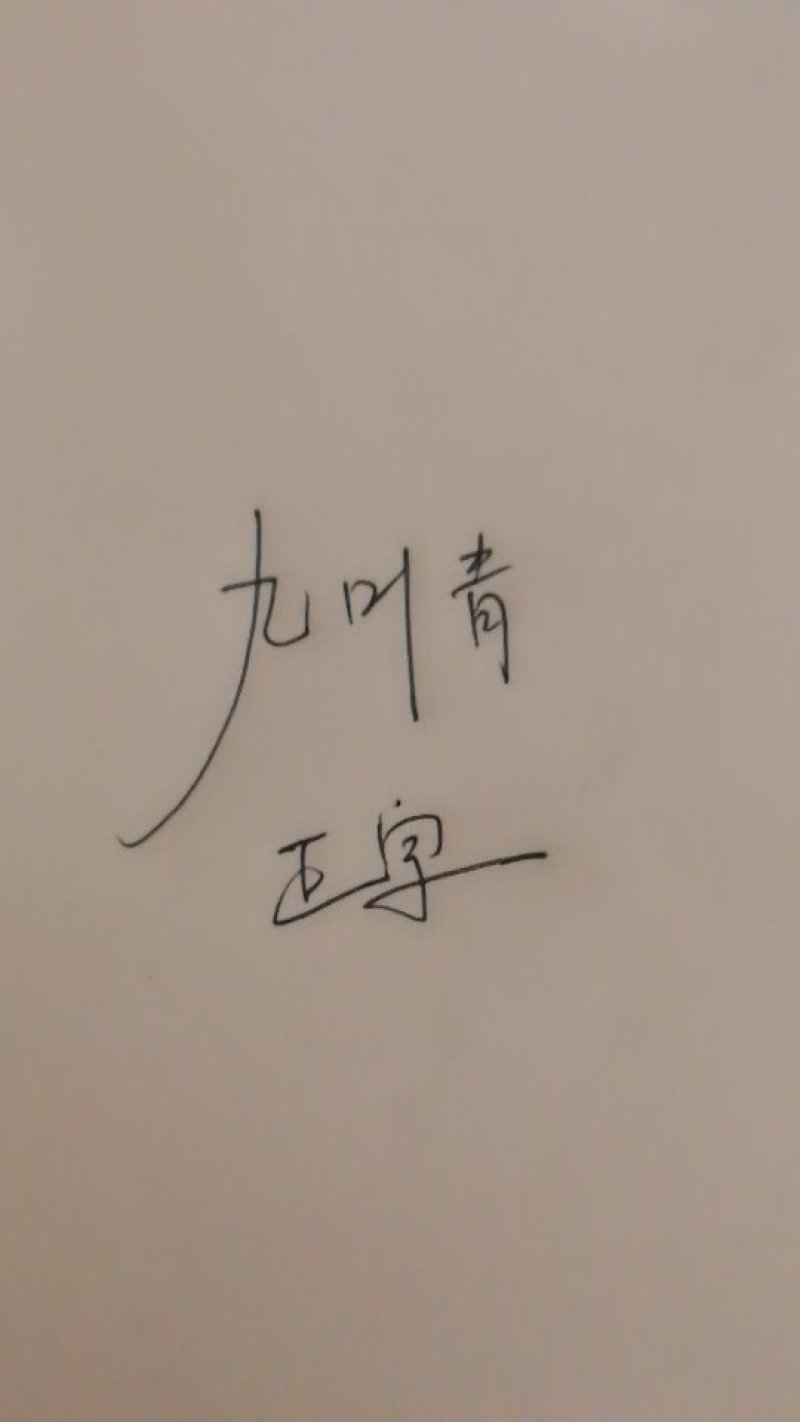 九叶青
正字